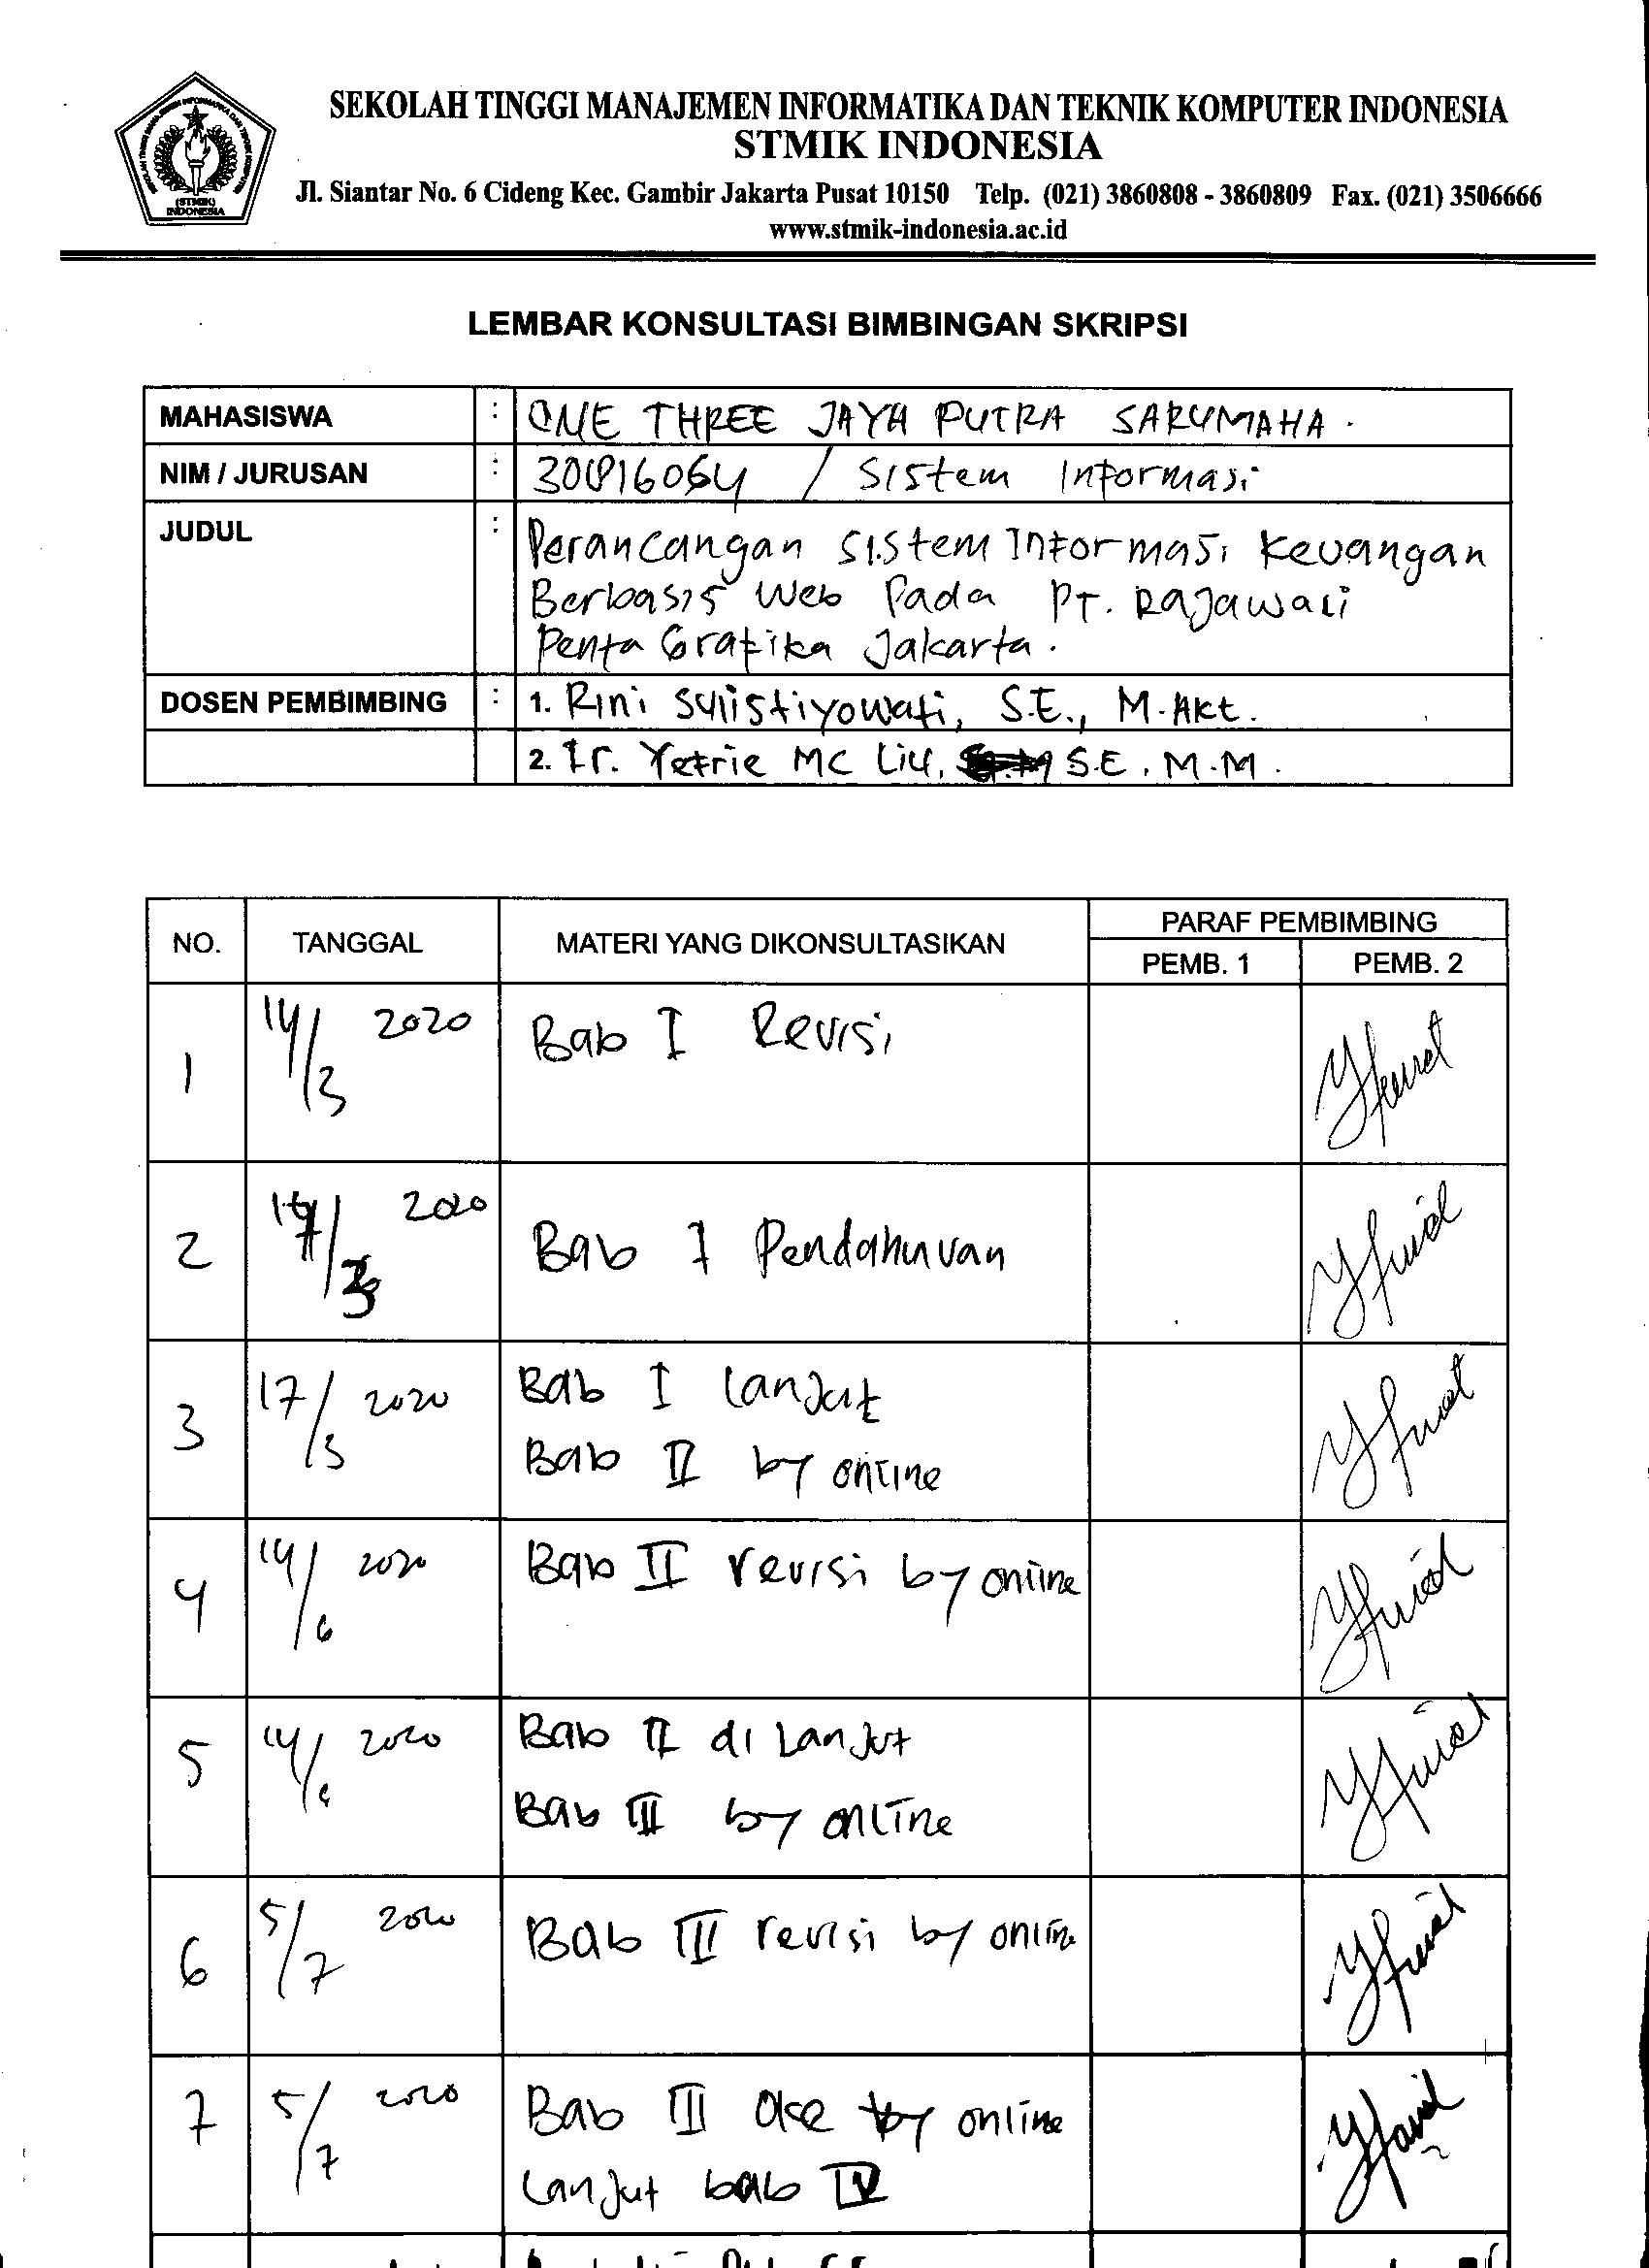 SEKOLAH TINGGI MANAJEMEN INFORMATIKA DAN TEKNIK KOMPUTER INDONESIA
STMIK INDONESIA
(STMIK)
INDONESIA
Jl. Siantar No. 6 Cideng Kec. Gambir Jakarta Pusat 10150 Telp. (021) 3860808 - 3860809 Fax. (021) 3506666
www.stmik-indonesia.ac.id
LEMBAR KONSULTASI BIMBINGAN SKRIPSI
MAHASISWA : ONE THREE JAYA PUTRA SARUMAHA.
NIM / JURUSAN : / Sistem Informasi
JUDUL : Perancangan Sistem Informasi Keuangan
Berbasis Web Pada PT. Rajawali
Penta Grafika Jakarta.
DOSEN PEMBIMBING : 1. Rini Sulistiyowati, S.E., M.Akt.
2. Ir. Yetrie MC Liu, S.E, M.M.
NO. TANGGAL MATERI YANG DIKONSULTASIKAN PARAF PEMBIMBING
PEMB. 1 PEMB. 2
1 14/3 2020 Bab I Revisi
2 2020 Bab I Pendahuluan
3 17/3 2020 Bab I Lanjut
Bab II by online
4 14/6 2020 Bab II revisi by online
5 14/6 2020 Bab II di Lanjut
Bab III by online
6 5/7 2020 Bab III revisi by online
7 5/7 2020 Bab III Oke by online
Lanjut bab IV